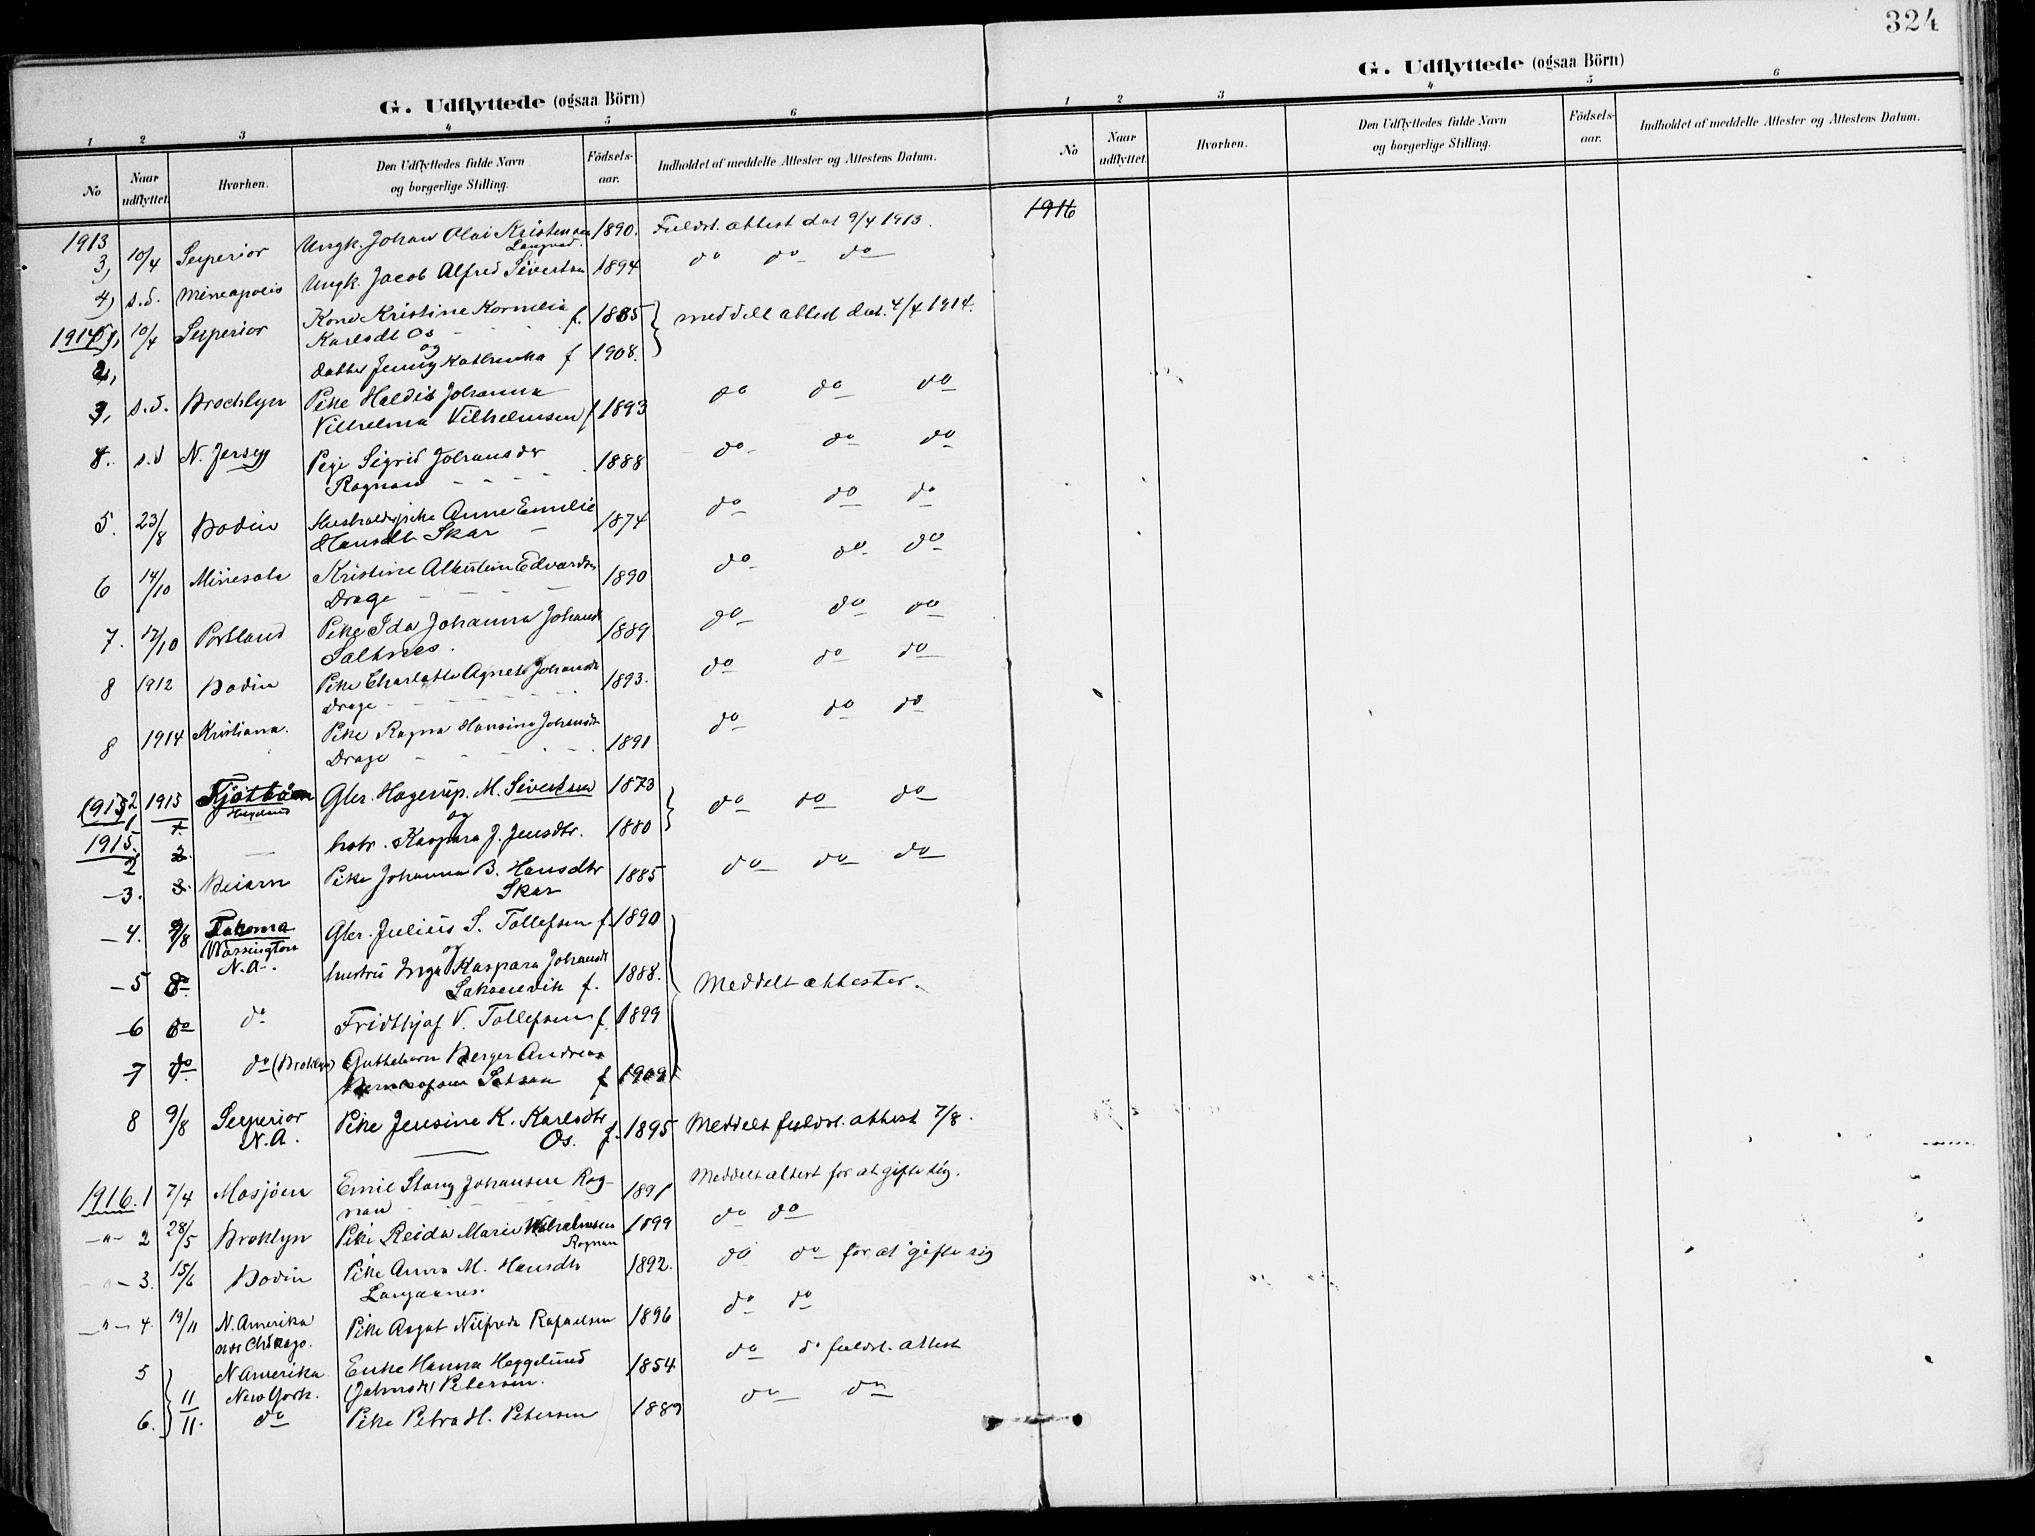 324
G. Udflyttede (ogsaa Börn)
1 2 3 4 5 6
No Naar udflyttet. Hvorhen. Den Udflyttedes fulde Navn og borgerlige Stilling. Födsels-aar. Indholdet af meddelte Attester og Attestens Datum.
1913
3, 10/4 Superior Ungk. Johan Olai Kristensen 1890. Fuldst. attest dat 9/4 1913.
4) s.d. Mineapolis Ungk. Jacob Alfred Sivertsen 1894 do do do
1914 1, 10/4 Superior Kone Kristine Kornelia f. 1885 meddelt attest dat. 4/4 1914.
Karlsdt Os
og
2, datter Jenny Kathinka f 1908.
3, s.d. Brooklyn Pike Haldis Johanna do do do
Vilhelma Vilhelmsen f 1893
4. s.d N. Jersey Pige Sigrid Johansdtr 1888 do do do
Rognan
5. 23/8 Bodin Husholdpike Anne Emelie 1874 do do do
Hansdtr Skar
6 14/10 Minesota Kristine Albertine Edvardsen 1890 do do do
Drage
7. 12/10 Portland Pike Ida Johanna Johansdt 1889 do do do
Saltnes.
8 1912 Bodin Pike Charlotte Agnete Johansdt 1893. do do do
Drage
8 1914 Kristiana. Pike Ragna Hansine Johansdt 1891 do do do
Drage
1915 1 1915 Gbr. Hagerup. M. Sivertsen 1873 do do do
og
1915. 2 2. hstr. Kaspara J. Jensdtr. 1880
-3. 3. Beiarn Pike Johanna B. Hansdtr 1885 do do do
Skar
-4. 9/8 Takoma Gbr. Julius S. Tollefsen f. 1890
(Wassington og
N.A.
-5 do hustru Inga Kaspara Johansdt 1888. Meddelt attester.
Saksenvik f.
-6 do do Fridthjof V. Tollefsen f. 1899
-7 do do (Broklyn) Guttebarn Berger Andreas
f 1909
8 9/8 Superior Pike Jensine K. Karlsdtr f. 1895 Meddelt fuldst. attest 7/8.
N.A. Os.
1916. 1 7/4 Mosjöen Emil Stang Johansen Rog- 1891 Meddelt attest for at gifte sig.
nan
-"- 2 28/5 Broklyn Pike Reida Marie Wilhelmsen 1899 do do
Rognan
-"- 3. 15/6 Bodin Pike Anna M. Hansdtr 1892. do do for at gifte sig
Langaanes.
-"- 4. 19/11 N. Amerika Pike Aagot Nilfreda Rafaelsen 1896 do do
over Chikago.
5 N Amerika Enke Hanna Heggelund 1854 do do fuldst. attest
11/11. New York. (Johnsdt) Petersen.
6. do Pike Petra H. Petersen 1889 do do
G. Udflyttede (ogsaa Börn)
1 2 3 4 5 6
No Naar udflyttet. Hvorhen. Den Udflyttedes fulde Navn og borgerlige Stilling. Födsels-aar. Indholdet af meddelte Attester og Attestens Datum.
1916